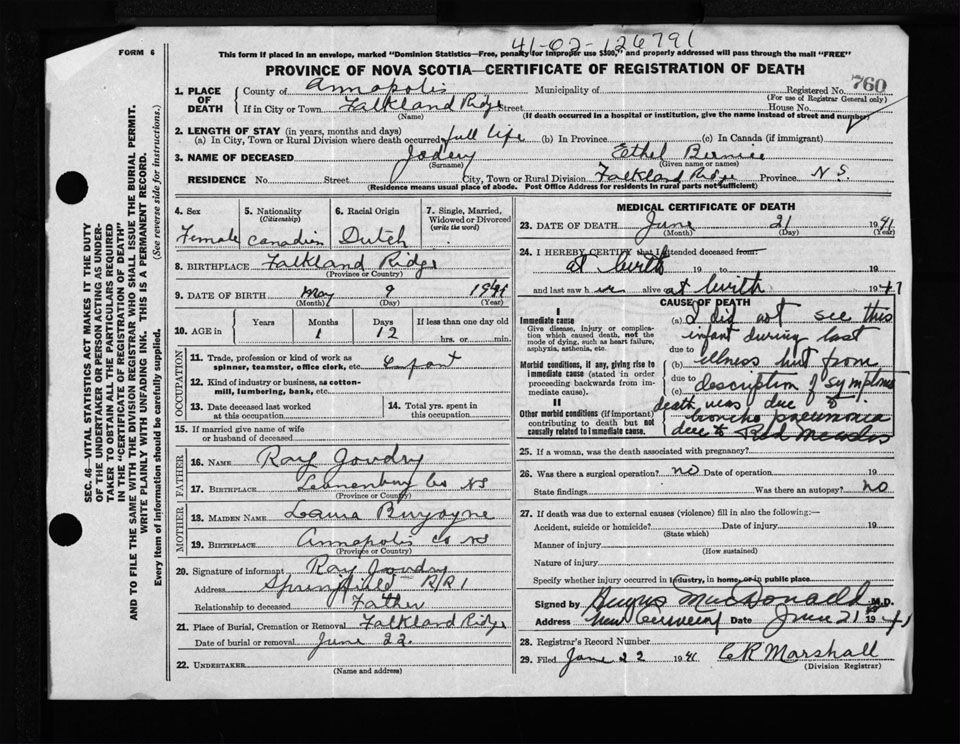 41-02-126791
FORM 6
This form if placed in an envelope, marked "Dominion Statistics—Free, penalty for improper use $300," and properly addressed will pass through the mail "FREE"
PROVINCE OF NOVA SCOTIA—CERTIFICATE OF REGISTRATION OF DEATH
760
1. PLACE OF DEATH County of Annapolis Municipality of Registered No.
(For use of Registrar General only)
If in City or Town Falkland Ridge Street House No.
(Name) (If death occurred in a hospital or institution, give the name instead of street and number)
2. LENGTH OF STAY (in years, months and days)
(a) In City, Town or Rural Division where death occurred full life (b) In Province (c) In Canada (if immigrant)
3. NAME OF DECEASED Jodery Ethel Bernice
(Surname) (Given name or names)
RESIDENCE No. Street City, Town or Rural Division Falkland Ridge Province N.S.
(Residence means usual place of abode. Post Office Address for residents in rural parts not sufficient)
4. Sex 5. Nationality (Citizenship) 6. Racial Origin 7. Single, Married, Widowed or Divorced (write the word)
Female Canadien Dutch
8. BIRTHPLACE Falkland Ridge
(Province or Country)
9. DATE OF BIRTH May 9 1941
(Month) (Day) (Year)
10. AGE in Years Months Days If less than one day old
1 12 hrs. or min.
OCCUPATION
11. Trade, profession or kind of work as spinner, teamster, office clerk, etc.
12. Kind of industry or business, as cotton-mill, lumbering, bank, etc.
13. Date deceased last worked at this occupation 14. Total yrs. spent in this occupation
15. If married give name of wife or husband of deceased
FATHER
16. NAME Roy Joudry
17. BIRTHPLACE Lunenburg Co NS
(Province or Country)
MOTHER
18. MAIDEN NAME Laura
19. BIRTHPLACE Annapolis Co NS
(Province or Country)
20. Signature of informant Roy Joudry
Address Springfield R R 1
Relationship to deceased Father
21. Place of Burial, Cremation or Removal Falkland Ridge
Date of burial or removal June 22
22. UNDERTAKER
(Name and address)
MEDICAL CERTIFICATE OF DEATH
23. DATE OF DEATH June 21 1941
(Month) (Day) (Year)
24. I HEREBY CERTIFY that I attended deceased from
at birth 19 to 19
and last saw her alive at birth 1941
CAUSE OF DEATH
I
Immediate cause
Give disease, injury or complication which caused death, not the mode of dying, such as heart failure, asphyxia, asthenia, etc.
Morbid conditions, if any, giving rise to immediate cause (stated in order proceeding backwards from immediate cause).
II
Other morbid conditions (if important) contributing to death but not causally related to immediate cause.
(a) I did not see this
infant during last
due to
(b) illness but from
due to
(c) description of symptoms
death was due to
broncho pneumonia
due to Red Measles
25. If a woman, was the death associated with pregnancy?
26. Was there a surgical operation? no Date of operation 19
State findings Was there an autopsy? no
27. If death was due to external causes (violence) fill in also the following:—
Accident, suicide or homicide? Date of injury 19
(State which)
Manner of injury
(How sustained)
Nature of injury
Specify whether injury occurred in industry, in home, or in public place
Signed by MacDonald M.D.
Address New Date June 21 1941
28. Registrar's Record Number
29. Filed June 22 1941 C R Marshall
(Division Registrar)
SEC. 46—VITAL STATISTICS ACT MAKES IT THE DUTY
OF THE UNDERTAKER OR PERSON ACTING AS UNDER-
TAKER TO OBTAIN ALL THE PARTICULARS REQUIRED
IN THE "CERTIFICATE OF REGISTRATION OF DEATH"
AND TO FILE THE SAME WITH THE DIVISION REGISTRAR WHO SHALL ISSUE THE BURIAL PERMIT.
WRITE PLAINLY WITH UNFADING INK. THIS IS A PERMANENT RECORD.
Every item of information should be carefully supplied. (See reverse side for Instructions.)